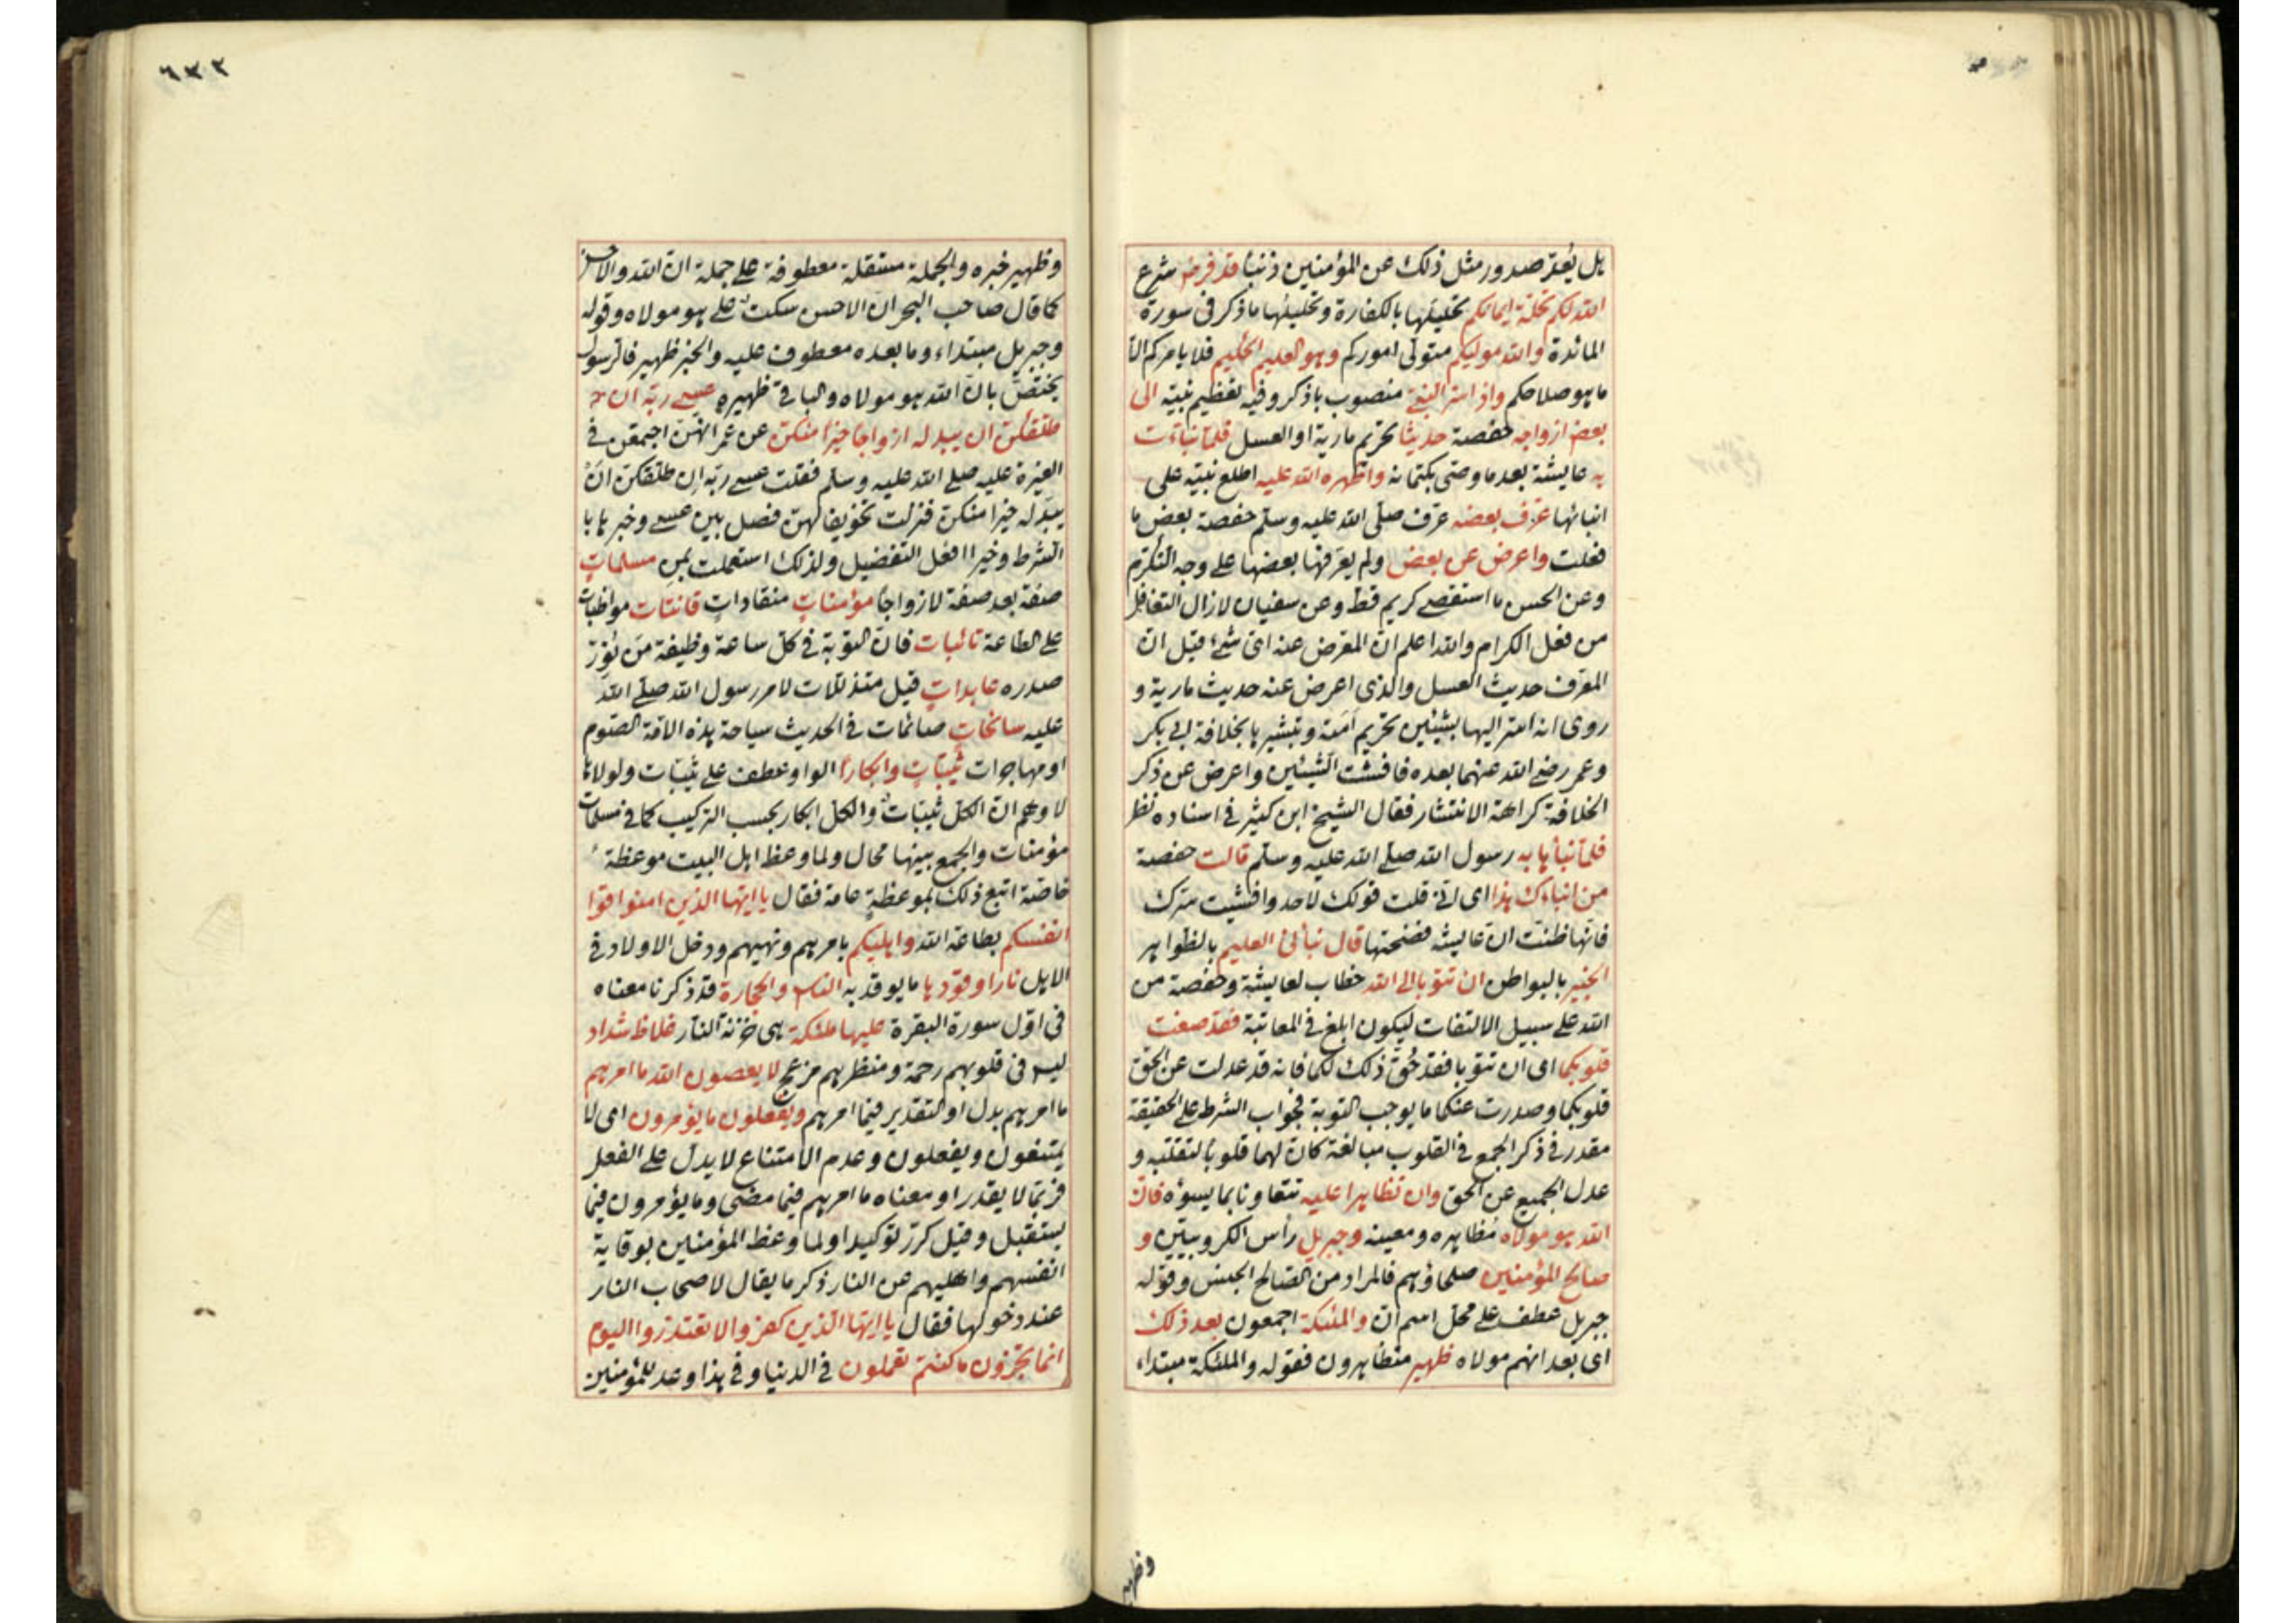 بل يُعدّ صدور مثل ذلك عن المؤمنين ذنبًا قد فرض شرع
الله لكم تحلة ايمانكم تحليلها بالكفارة وتحليلها ما ذكر في سورة
المائدة والله موليكم متولى اموركم وهو العليم الحكيم فلا يامركم الا
ما هو صلاحكم واذ اسر النبي منصوب باذكر وفيه تعظيم نبيّه الى
بعض ازواجه حفصة حديثا تحريم مارية او العسل فلما نباءت
به عايشة بعد ما وصى بكتمانه واظهره الله عليه اطلع نبيّه على
انبائها عرف بعضه عرف صلّى الله عليه وسلم حفصة بعض ما
فعلت واعرض عن بعض ولم يعرفها بعضها على وجه التكرّم
وعن الحسن ما استقصى كريم قط وعن سفيان لازال التغافل
من فعل الكرام والله اعلم ان المعرض عنه اى شئ قيل ان
المعرف حديث العسل والذى اعرض عنه حديث مارية و
روى انه اسر اليها بشيئين تحريم اَمَته وتبشيرها بخلافة ابي بكر
وعمر رضى الله عنهما بعده فافشت الشيئين واعرض عن ذكر
الخلافة كراهة الانتشار فقال الشيخ ابن كثير في اسناده نظر
فلما نبأها به رسول الله صلى الله عليه وسلم قالت حفصة
من انباءك هذا اى انى قلت قولك لاحد وافشيت سرك
فانها ظنت ان عايشة فضحتها قال نبأنى العليم بالظواهر
الخبير بالبواطن ان تتوبا الى الله خطاب لعايشة وحفصة من
الله على سبيل الالتفات ليكون ابلغ في المعاتبة فقد صغت
قلوبكما اى ان تتوبا فقد حُقّ ذلك لكما فانه قد عدلت عن الحق
قلوبكما وصدرت عنكما ما يوجب التوبة فجواب الشرط على الحقيقة
مقدر في ذكر الجمع في القلوب مبالغة كانّ لهما قلوبا لتقلبه و
عدل الجميع عن الحق وان تظاهرا عليه تتعاونا بما يسوؤه فان
الله هو مولاه مُظاهره ومعينه وجبريل رأس الكروبيين و
صالح المؤمنين صلحاؤهم فالمراد من الصالح الجنس وقوله
جبريل عطف على محل اسم ان والملئكة اجمعون بعد ذلك
اى بعد انهم مولاه ظهير متظاهرون فقوله والملئكة مبتداء
وظهير
٦٣٢
وظهير خبره والجملة مستقلة معطوفة على جملة ان الله والاحسن
كما قال صاحب البحر ان الاحسن سكت على هو مولاه وقوله
وجبريل مبتداء وما بعده معطوف عليه والخبر ظهير فالرسول
يختص بان الله هو مولاه والباقى ظهيره عسى ربّه ان
طلقكن ان يبدله ازواجا خيرا منكن عن عمر انهن اجتمعن في
الغيرة عليه صلى الله عليه وسلم فقلت عسى ربّه ان طلقكن ان
يبدّله خيرا منكن فنزلت تخويفا لهن فصل بين عسى وخبرها با
الشرط وخيرا افعل التفضيل ولذلك استعملت بمن مسلماتٍ
صفة بعد صفة لازواجا مؤمناتٍ منقاداتٍ قانتات مواظبات
على الطاعة تائبات فان التوبة في كل ساعة وظيفة من نُوّر
صدره عابداتٍ قيل متذللات لامر رسول الله صلى الله
عليه سائحاتٍ صائمات في الحديث سياحة هذه الامة الصوم
او مهاجرات ثيباتٍ وابكارا الواو عطف على ثيبات ولولاها
لاوهم ان الكل ثيبات والكل ابكار بحسب التركيب كما في مسلمات
مؤمنات والجمع بينهما محال ولما وعظ اهل البيت موعظة
خاصة اتبع ذلك بموعظةٍ عامة فقال يا ايها الذين امنوا قوا
انفسكم بطاعة الله واهليكم بامرهم ونهيهم ودخل الاولاد في
الاهل نارا وقودها ما يوقد به الناس والحجارة قد ذكرنا معناه
في اوّل سورة البقرة عليها ملئكة هي خزنة النار غلاظ شداد
ليس في قلوبهم رحمة ومنظرهم مزعج لا يعصون الله ما امرهم
ما امرهم بدل او التقدير فيما امرهم ويفعلون ما يؤمرون اى لا
يمتنعون ويفعلون وعدم الامتناع لا يدل على الفعل
فربّما لا يقدر او معناه ما امرهم فيما مضى وما يؤمرون فيما
يستقبل وقيل كرر توكيدا ولما وعظ المؤمنين بوقاية
انفسهم واهليهم من النار ذكر ما يقال لاصحاب النار
عند دخولها فقال يا ايها الذين كفروا لا تعتذروا اليوم
انما تجزون ما كنتم تعملون في الدنيا وفي هذا وعد للمؤمنين